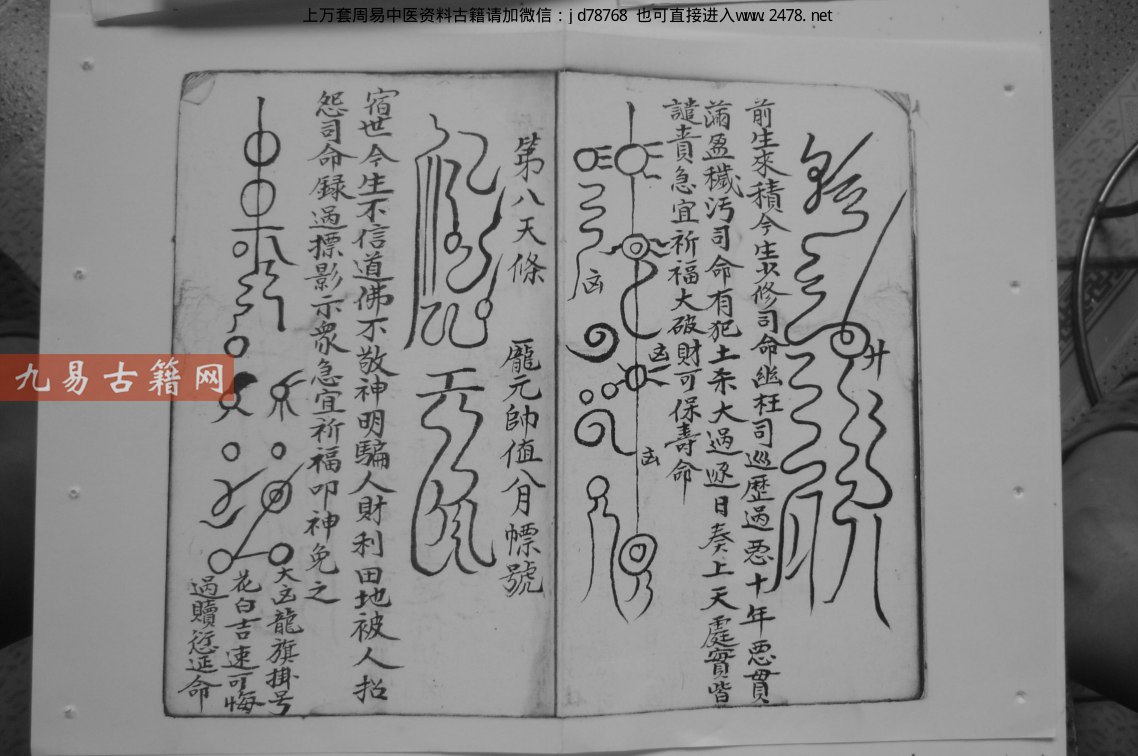 上万套周易中医资料古籍请加微信：jd78768 也可直接进入www.2478.net
升
前生來積今生少修司命幽枉司巡歷過惡十年惡貫
滿盈穢污司命有犯土杀大過逐日奏上天處實皆
譴責急宜祈福大破財可保壽命
凶
凶
凶
第八天條 龐元帥值八月幖號
宿世今生不信道佛不敬神明騙人財利田地被人招
怨司命録過摽影示衆急宜祈福叩神免之
龍旗掛号
花白吉速可悔
過贖愆延命
九易古籍网